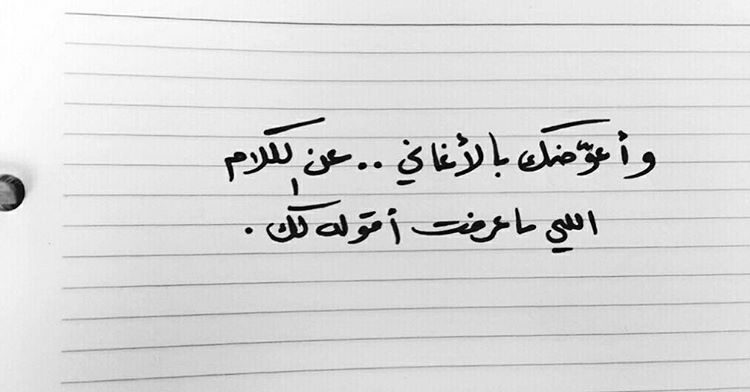 وأعوّضك بالأغاني .. عن الكلام
اللي ماعرفت أقوله لك .